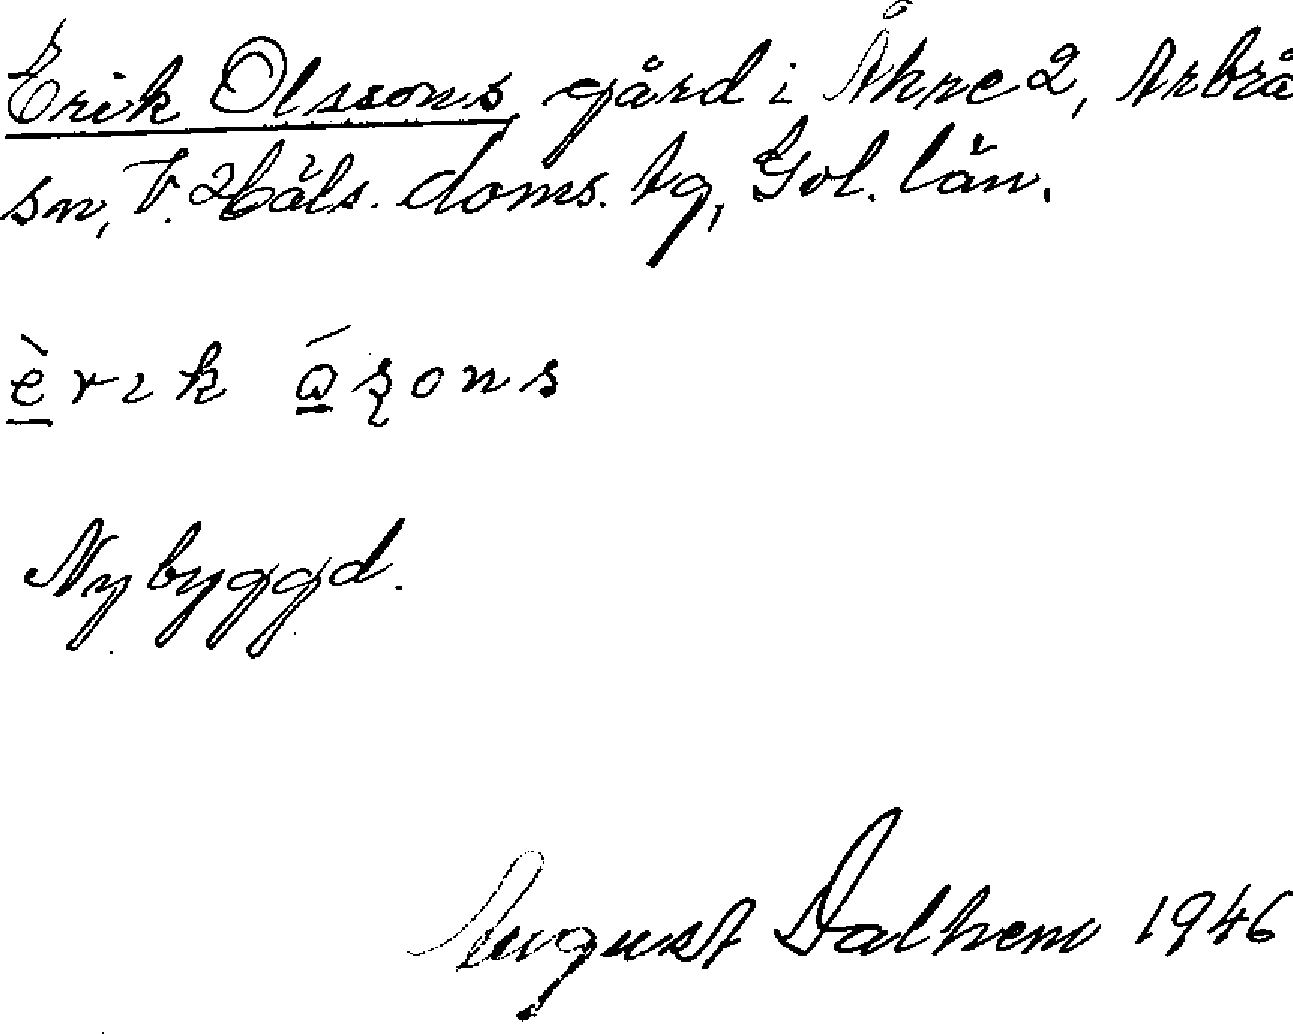 Erik Olssons gård i Åkre 2, Arbrå
sn, V. Häls. doms. tg, Gvl. län.
èrık ása̱sons
Nybyggd.
August Dalhem 1946